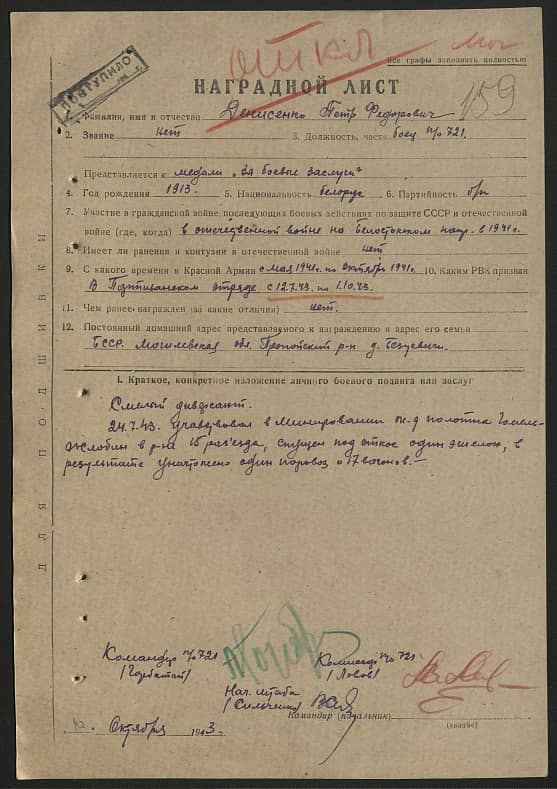 откл
Все графы заполнять полностью
ПОСТУПИЛО
НАГРАДНОЙ ЛИСТ
159
1. Фамилия, имя и отчество Денисенко Петр Федорович
2. Звание нет 3. Должность, часть боец п/о 721.
Представляется к медали "За боевые заслуги"
4. Год рождения 1913. 5. Национальность белорус 6. Партийность б/п
7. Участие в гражданской войне, последующих боевых действиях по защите СССР и отечественной
войне (где, когда) в отечественной войне на Белостокском напр. в 1941г.
8. Имеет ли ранения и контузии в отечественной войне нет
9. С какого времени в Красной Армии с мая 1941г. по октябрь 1941г. 10. Каким РВК призван
В Партизанском отряде с 12.7.43. по 1.10.43.
11. Чем ранее награжден (за какие отличия) нет.
12. Постоянный домашний адрес представляемого к награждению и адрес его семьи
БССР. Могилевская обл. Пропойский р-н д.
I. Краткое, конкретное изложение личного боевого подвига или заслуг
Смелый диверсант.
24.7.43. участвовал в минировании ж-д полотна Гомель-
Жлобин в р-не 15 раз'езда, спущен под откос один эшелон, в
результате уничтожено один паровоз и 17 вагонов.-
ДЛЯ ПОДШИВКИ
Командир п/о 721
(Горбатый)
Комиссар п/о 721
Нач. штаба
Командир (начальник)
(звание)
Октября 1943